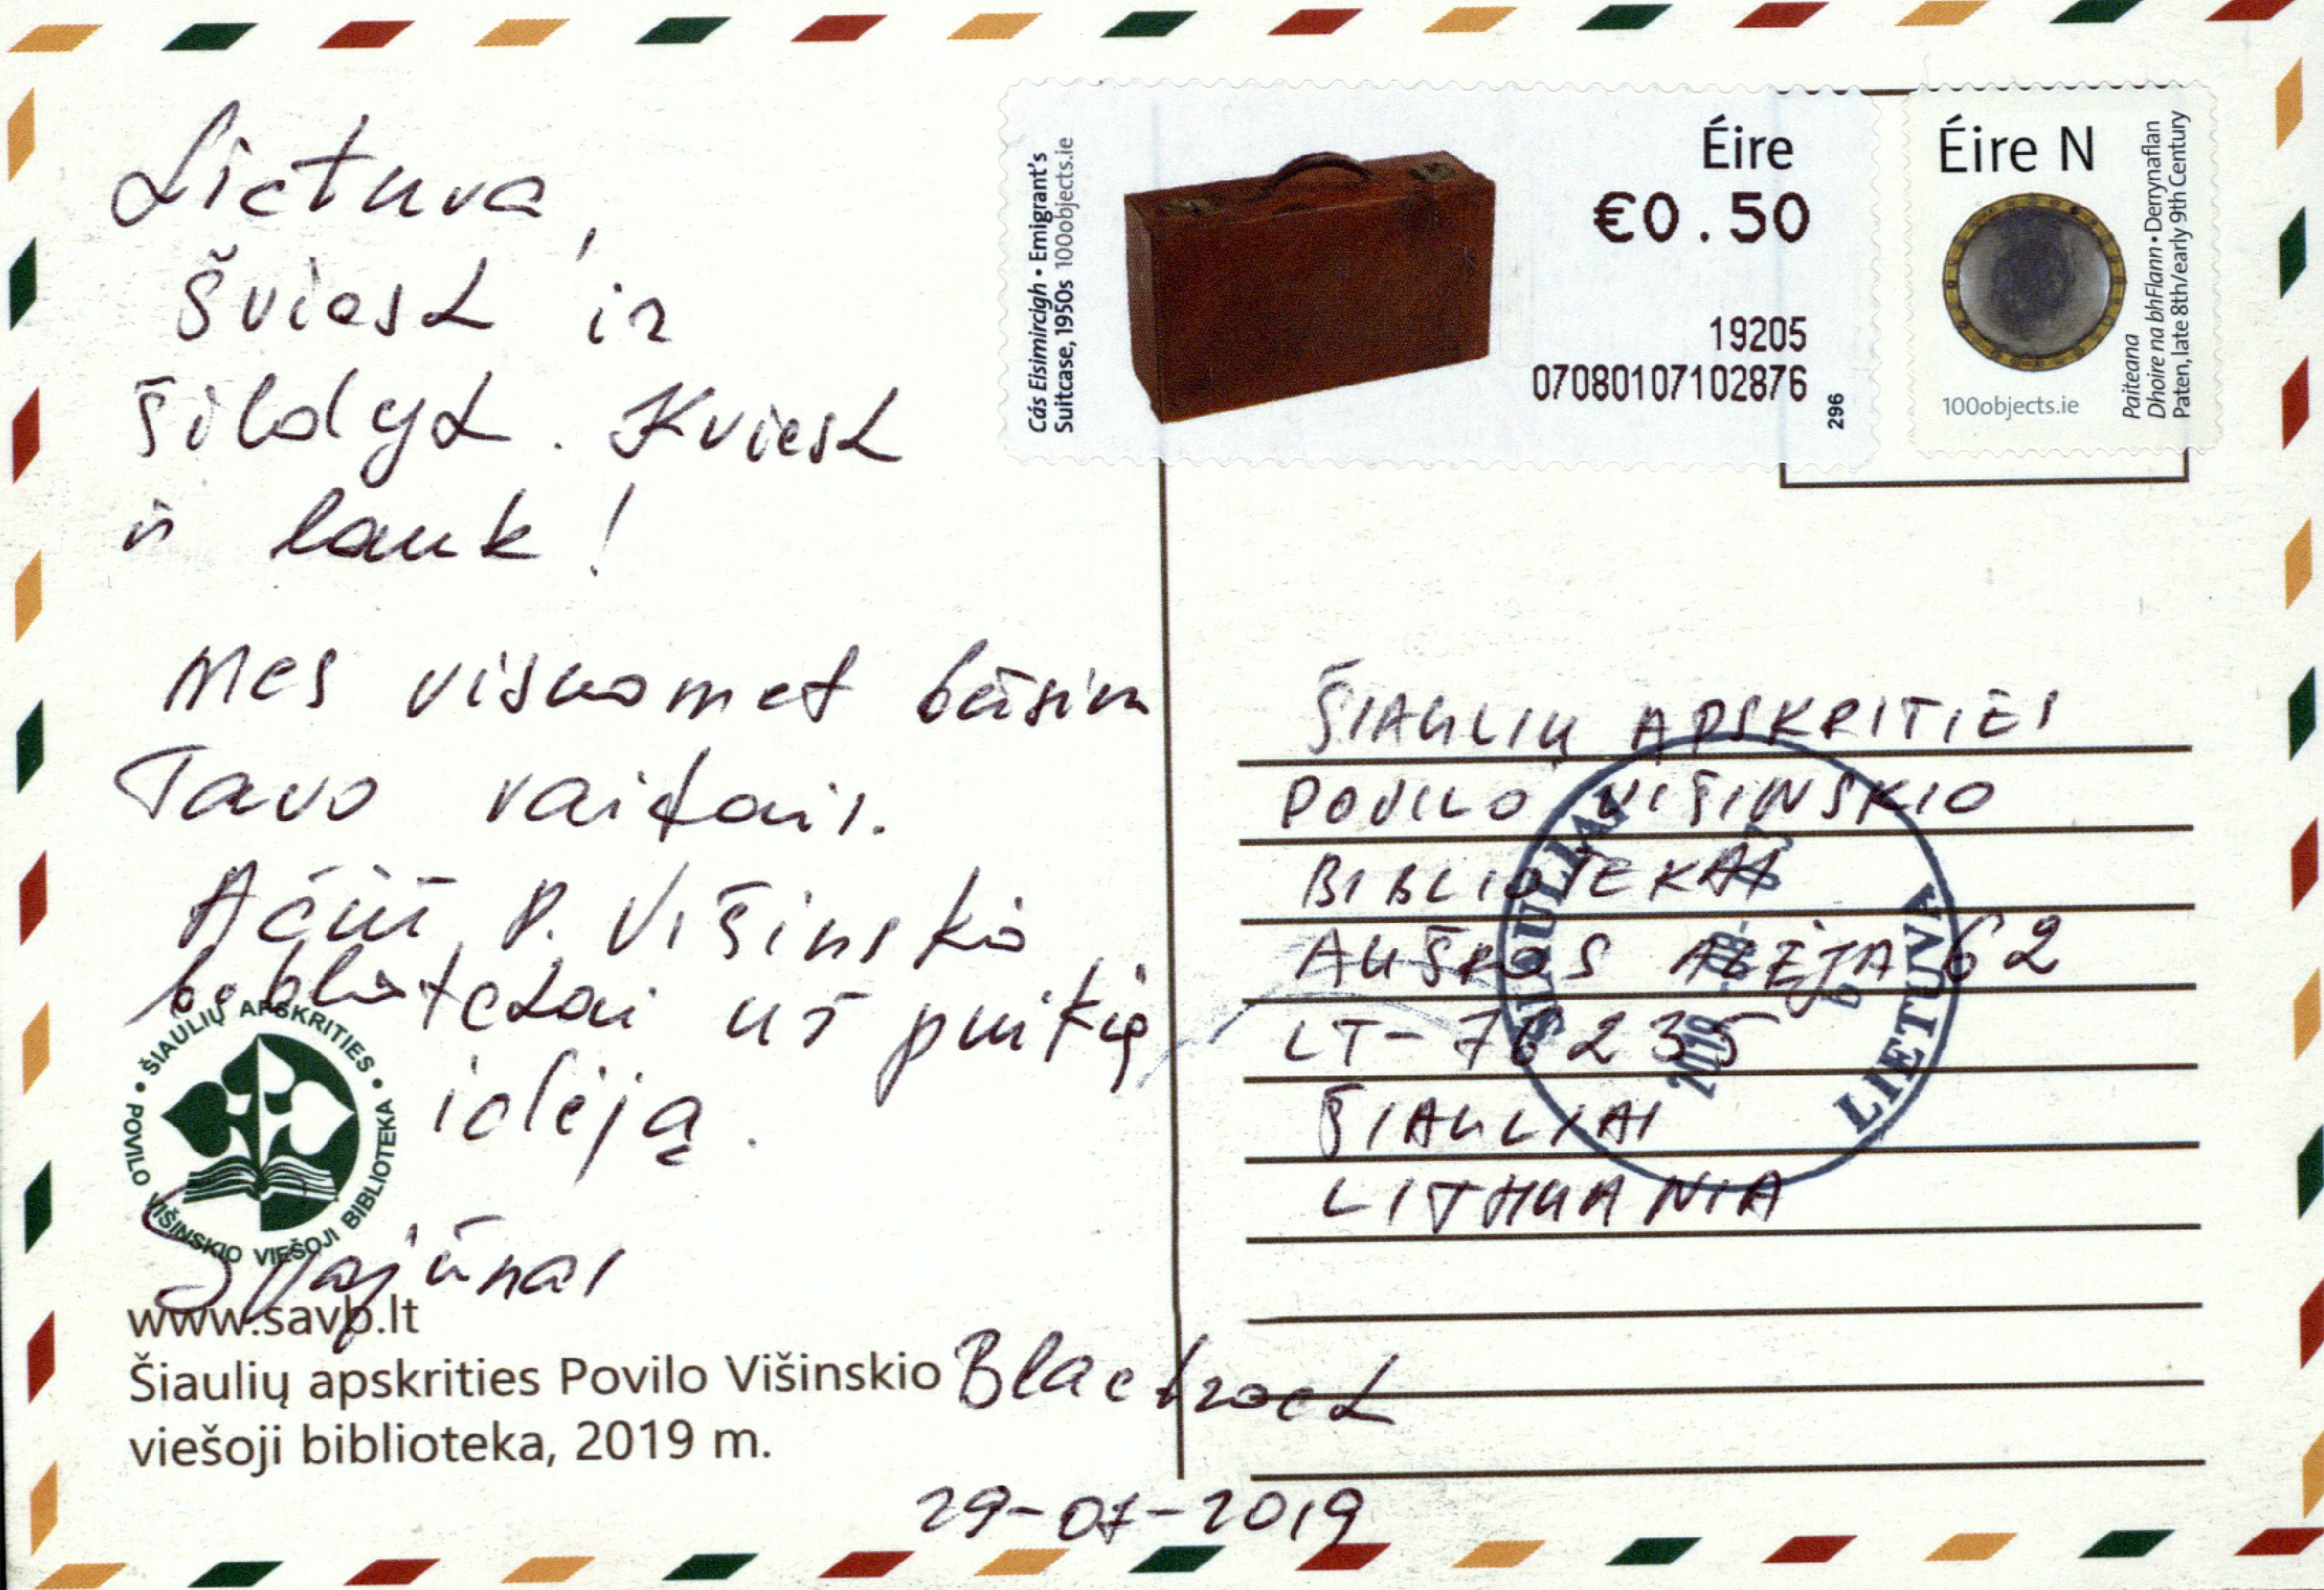 Lietuva,
Šviesk ir
šildyk. Kviesk
ir lauk!
Mes visuomet būsim
Tavo vaikais.
Ačiū P. Višinskio
bibliotekai už puikią
idėją.
ŠIAULIŲ APSKRITIES
POVILO VIŠINSKIO VIEŠOJI BIBLIOTEKA
www.savb.lt
Šiaulių apskrities Povilo Višinskio
viešoji biblioteka, 2019 m.
Blackrock
29-07-2019
Cás Eisimircigh • Emigrant's
Suitcase, 1950s 100objects.ie
Éire
€0.50
19205
07080107102876
296
Éire N
100objects.ie
Paiteana
Dhoire na bhFlann • Derrynaflan
Paten, late 8th/early 9th Century
ŠIAULIŲ APSKRITIES
POVILO VIŠINSKIO
BIBLIOTEKAI
AUŠROS ALĖJA 62
LT-76235
ŠIAULIAI
LITHUANIA
ŠIAULIAI
LIETUVA